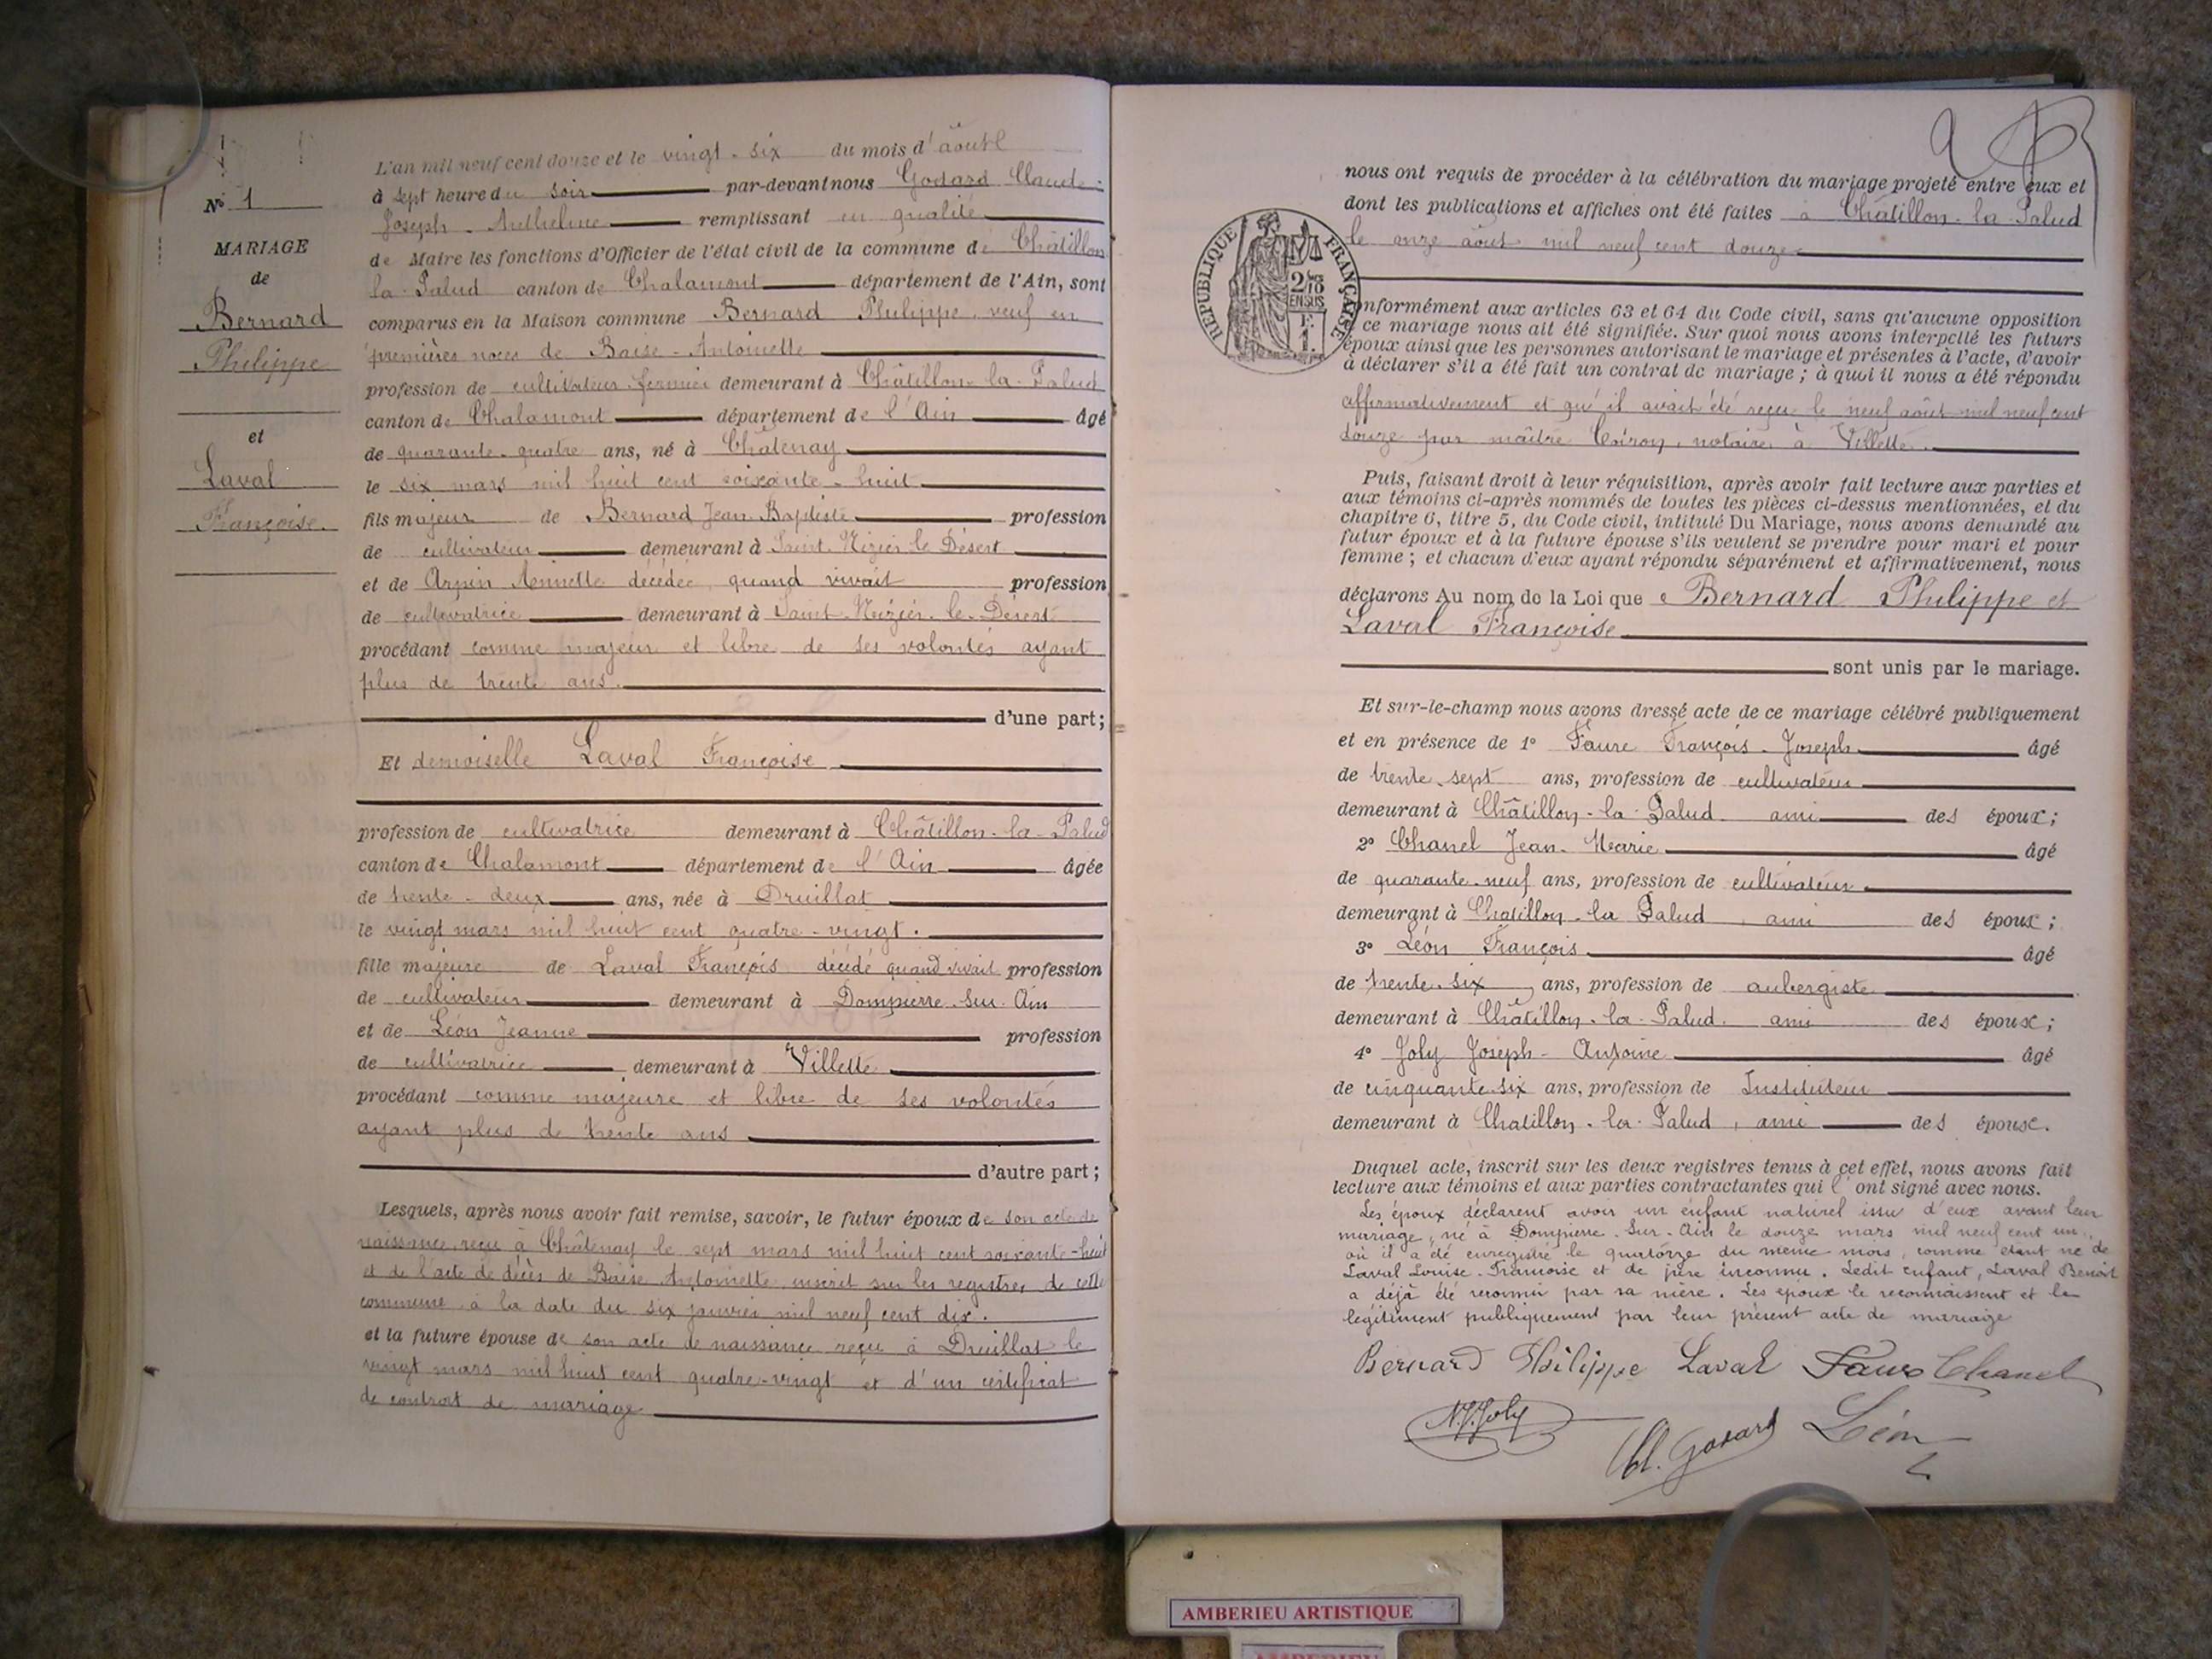 N° 1
MARIAGE
de
Bernard
Philippe
et
Laval
Françoise
L'an mil neuf cent douze et le vingt-six du mois d'août
à sept heure du soir par-devant nous Godard Claude-
Joseph-Anthelme remplissant en qualité
de Maire les fonctions d'Officier de l'état civil de la commune de Châtillon
la-Palud canton de Chalamont département de l'Ain, sont
comparus en la Maison commune Bernard Philippe, veuf en
premières noces de Baise-Antoinette
profession de cultivateur-fermier demeurant à Châtillon-la-Palud
canton de Chalamont département de l'Ain âgé
de quarante-quatre ans, né à Châtenay
le six mars mil huit cent soixante-huit
fils majeur de Bernard Jean-Baptiste profession
de cultivateur demeurant à Saint-Nizier le Désert
et de Arpin Annette décédée, quand vivait profession
de cultivatrice demeurant à Saint-Nizier-le-Désert
procédant comme majeur et libre de ses volontés ayant
plus de trente ans.
d'une part;
Et demoiselle Laval Françoise
profession de cultivatrice demeurant à Châtillon-la-Palud
canton de Chalamont département de l'Ain âgée
de trente-deux ans, née à Druillat
le vingt mars mil huit cent quatre-vingt.
fille majeure de Laval François décédé quand vivait profession
de cultivateur demeurant à Dompierre-sur-Ain
et de Léon Jeanne profession
de cultivatrice demeurant à Villette
procédant comme majeure et libre de ses volontés
ayant plus de trente ans
d'autre part;
Lesquels, après nous avoir fait remise, savoir, le futur époux de son acte de
naissance, reçu à Châtenay le sept mars mil huit cent soixante-huit
et de l'acte de décès de Baise Antoinette inscrit sur les registres de cette
commune à la date du six janvier mil neuf cent dix.
et la future épouse de son acte de naissance reçu à Druillat le
vingt mars mil huit cent quatre-vingt et d'un certificat
de contrat de mariage
nous ont requis de procéder à la célébration du mariage projeté entre eux et
dont les publications et affiches ont été faites à Châtillon-la-Palud
le onze août mil neuf cent douze
RÉPUBLIQUE FRANÇAISE
2/10
EN SUS
F.
1.
conformément aux articles 63 et 64 du Code civil, sans qu'aucune opposition
à ce mariage nous ait été signifiée. Sur quoi nous avons interpellé les futurs
époux ainsi que les personnes autorisant le mariage et présentes à l'acte, d'avoir
à déclarer s'il a été fait un contrat de mariage; à quoi il nous a été répondu
affirmativement et qu'il avait été reçu le neuf août mil neuf cent
douze par maître Coiron, notaire à Villette.
Puis, faisant droit à leur réquisition, après avoir fait lecture aux parties et
aux témoins ci-après nommés de toutes les pièces ci-dessus mentionnées, et du
chapitre 6, titre 5, du Code civil, intitulé Du Mariage, nous avons demandé au
futur époux et à la future épouse s'ils veulent se prendre pour mari et pour
femme; et chacun d'eux ayant répondu séparément et affirmativement, nous
déclarons Au nom de la Loi que Bernard Philippe et
Laval Françoise
sont unis par le mariage.
Et sur-le-champ nous avons dressé acte de ce mariage célébré publiquement
et en présence de 1° Faure François-Joseph âgé
de trente-sept ans, profession de cultivateur
demeurant à Châtillon-la-Palud ami des époux;
2° Chanel Jean-Marie âgé
de quarante-neuf ans, profession de cultivateur
demeurant à Chatillon-la Palud, ami des époux;
3° Léon François âgé
de trente-six ans, profession de aubergiste
demeurant à Châtillon-la-Palud. ami des époux;
4° Joly Joseph-Antoine âgé
de cinquante-six ans, profession de Instituteur
demeurant à Chatillon-la-Palud, ami des époux.
Duquel acte, inscrit sur les deux registres tenus à cet effet, nous avons fait
lecture aux témoins et aux parties contractantes qui l'ont signé avec nous.
Les époux déclarent avoir un enfant naturel issu d'eux avant leur
mariage, né à Dompierre-Sur-Ain le douze mars mil neuf cent un,
où il a été enregistré le quatorze du même mois, comme étant né de
Laval Louise-Françoise et de père inconnu. Ledit enfant, Laval Benoit
a déjà été reconnu par sa mère. Les époux le reconnaissent et le
légitiment publiquement par leur présent acte de mariage
Bernard Philippe Laval Faure Chanel
Joly
Cl. Godard Léon
AMBERIEU ARTISTIQUE
AMBERIEU